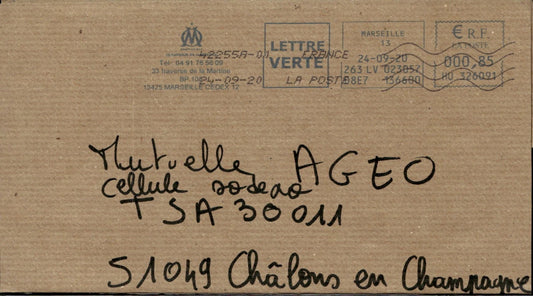 42255A-01 FRANCE
24-09-20 LA POSTE
Tél: 04 91 76 56 09
33 Traverse de la Martine
BP 108
13425 MARSEILLE CEDEX 12
LETTRE
VERTE
MARSEILLE
13
24-09-20
263 LV 023052
08E7 136600
€ R.F.
LA POSTE
000,85
HU 326091
Mutuelle AGEO
cellule
TSA 30011
51049 Châlons en Champagne